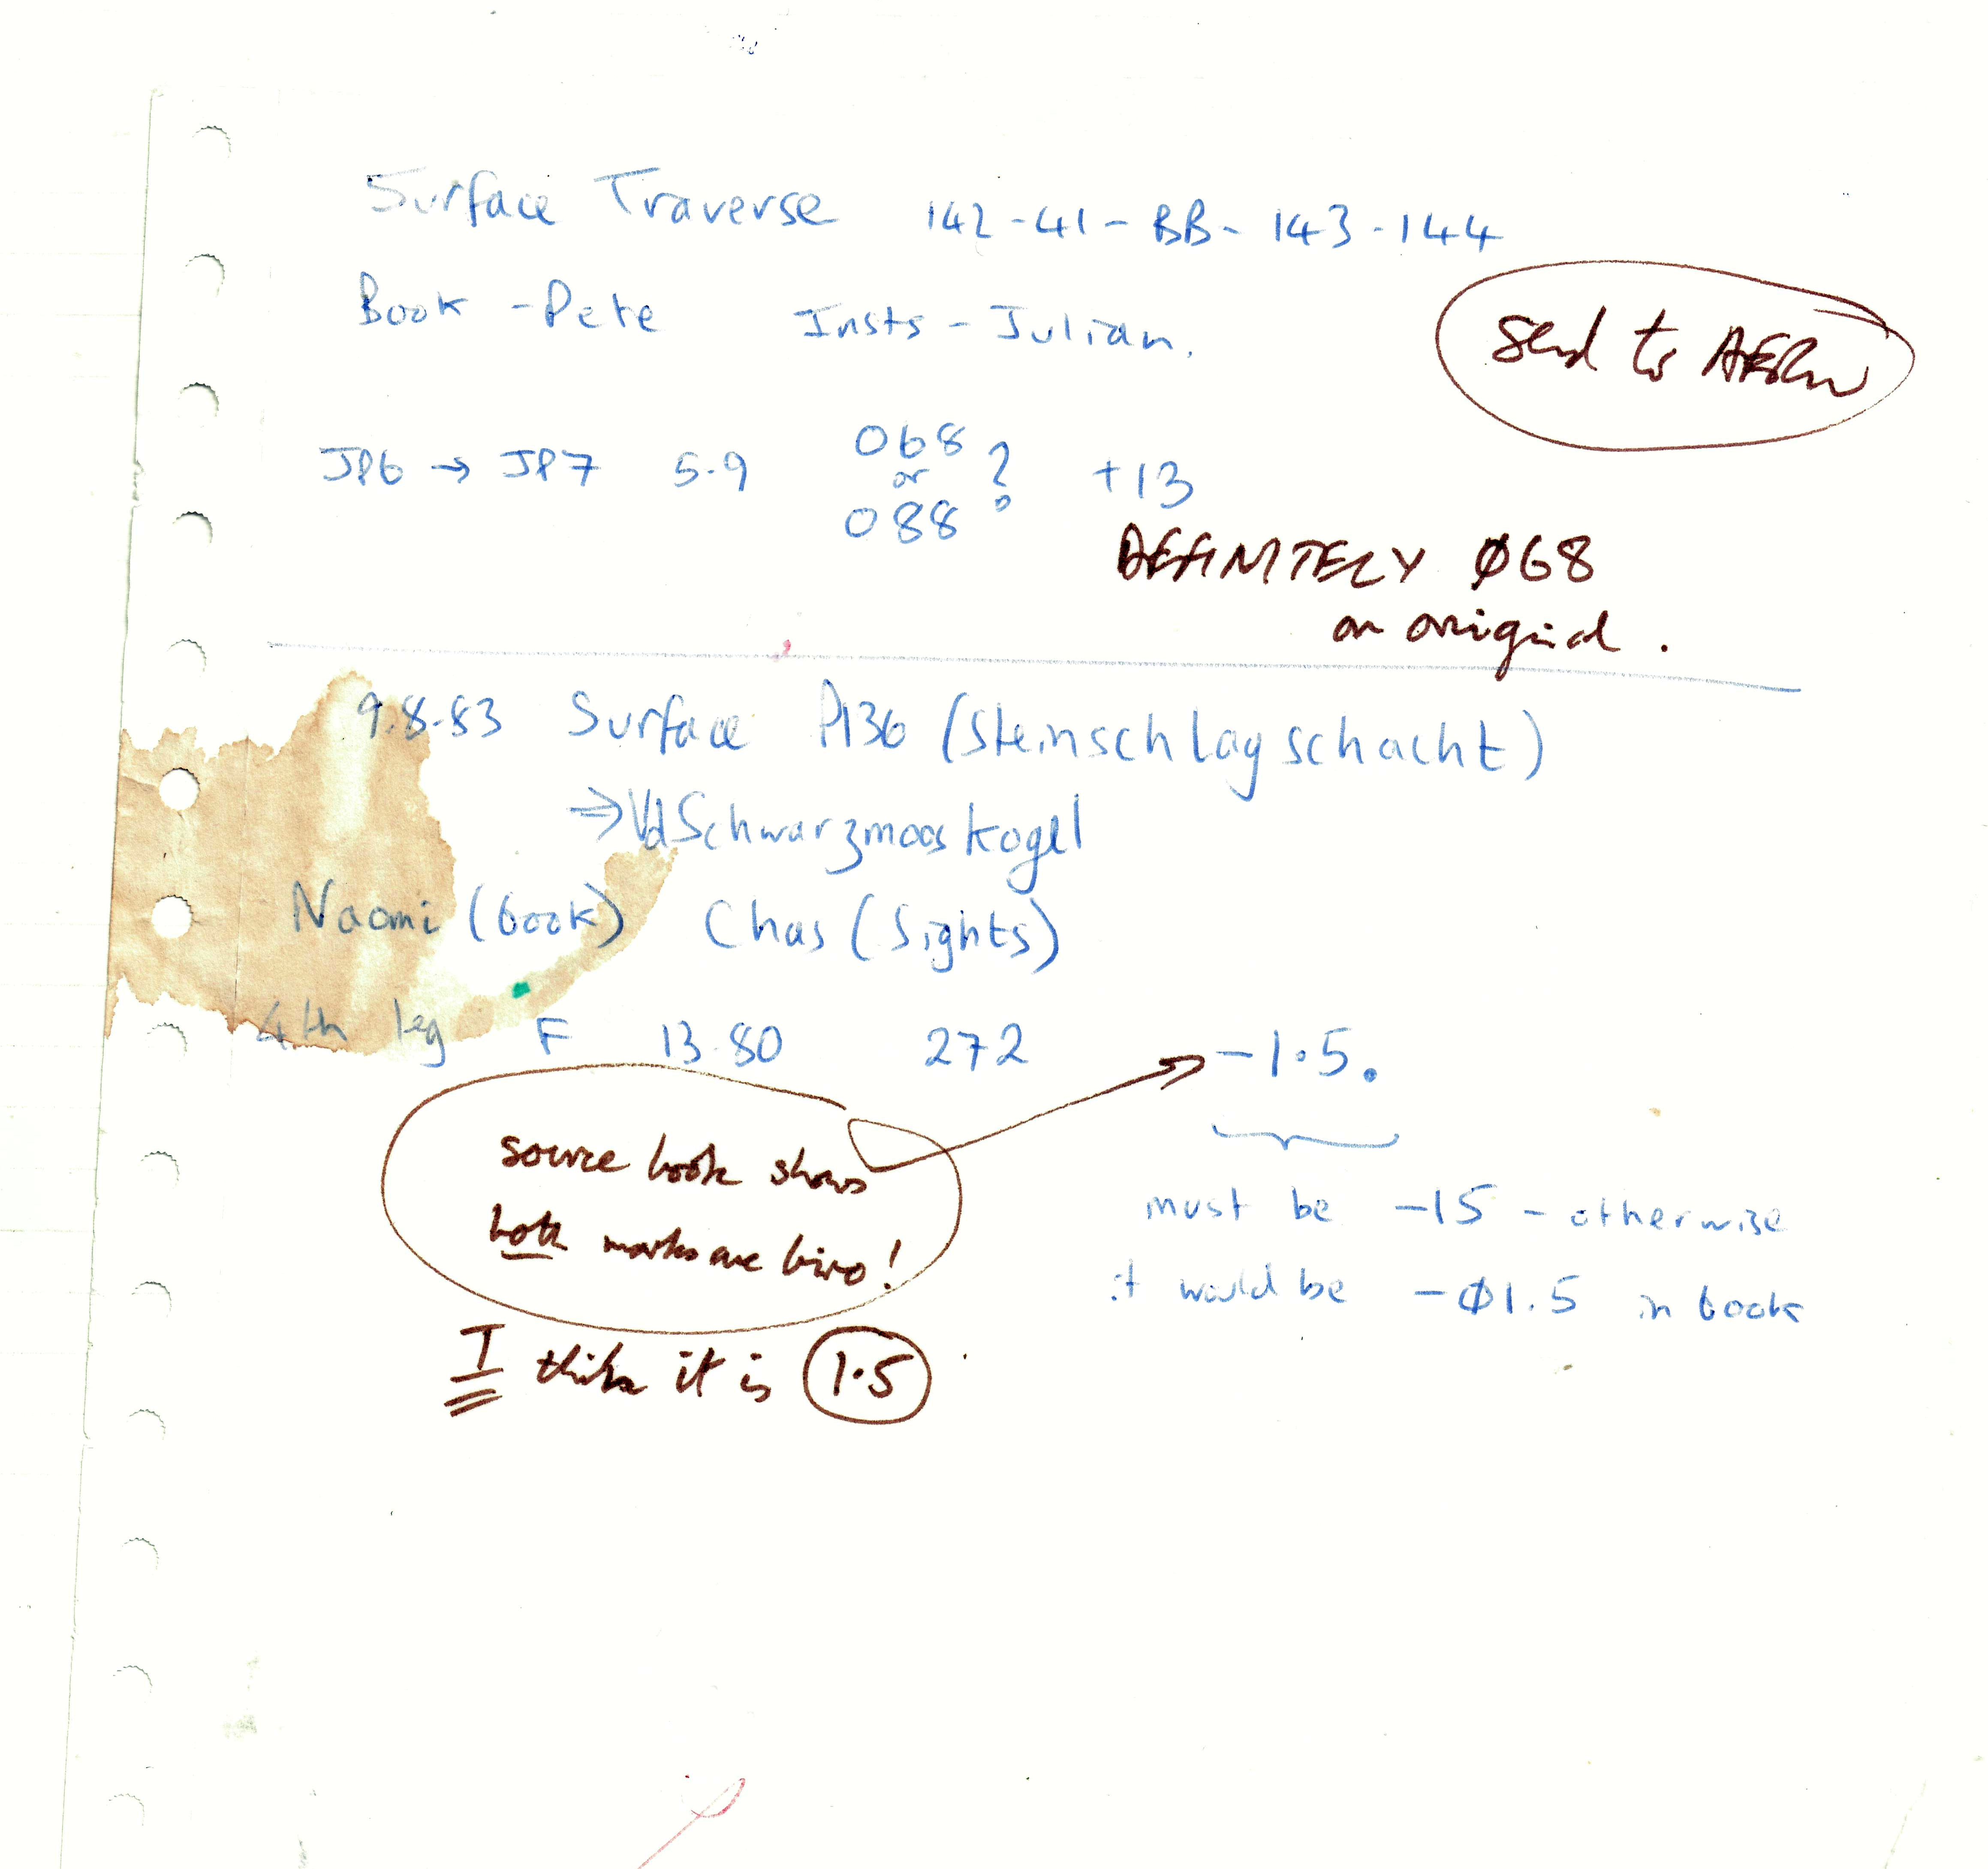 Surface Traverse 142-41-BB-143-144
Book - Pete Insts - Julian.
send to
JP6 → JP7 5.9 068 or 088 ? +13
DEFINITELY Ø68
on original.
9.8.83 Surface P136 (Steinschlagschacht)
⇒ VdSchwarzmooskogel
Naomi (book) Chas (Sights)
4th leg F 13.80 272 -1.5.
source book shows
both marks are biro!
I think it is 1.5
must be -15 - otherwise
it would be -Ø1.5 in book